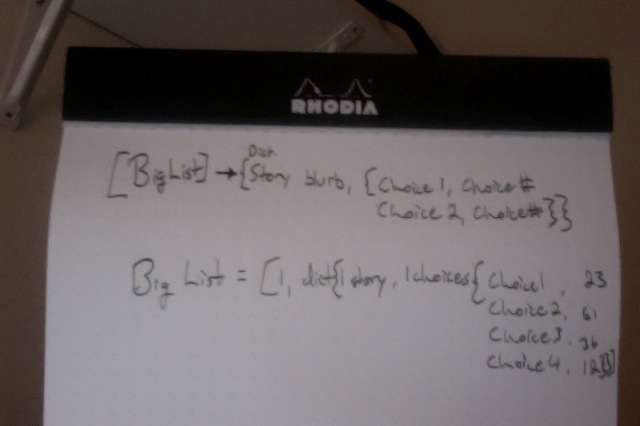 RHODIA
Dict.
[Big List] → {Story blurb, {Choice 1, Choice #
Choice 2, Choice #}}
Big List = [1, dict{1 story, 1 choices{ Choice 1, 23
Choice 2, 61
Choice 3, 36
Choice 4, 12}}]